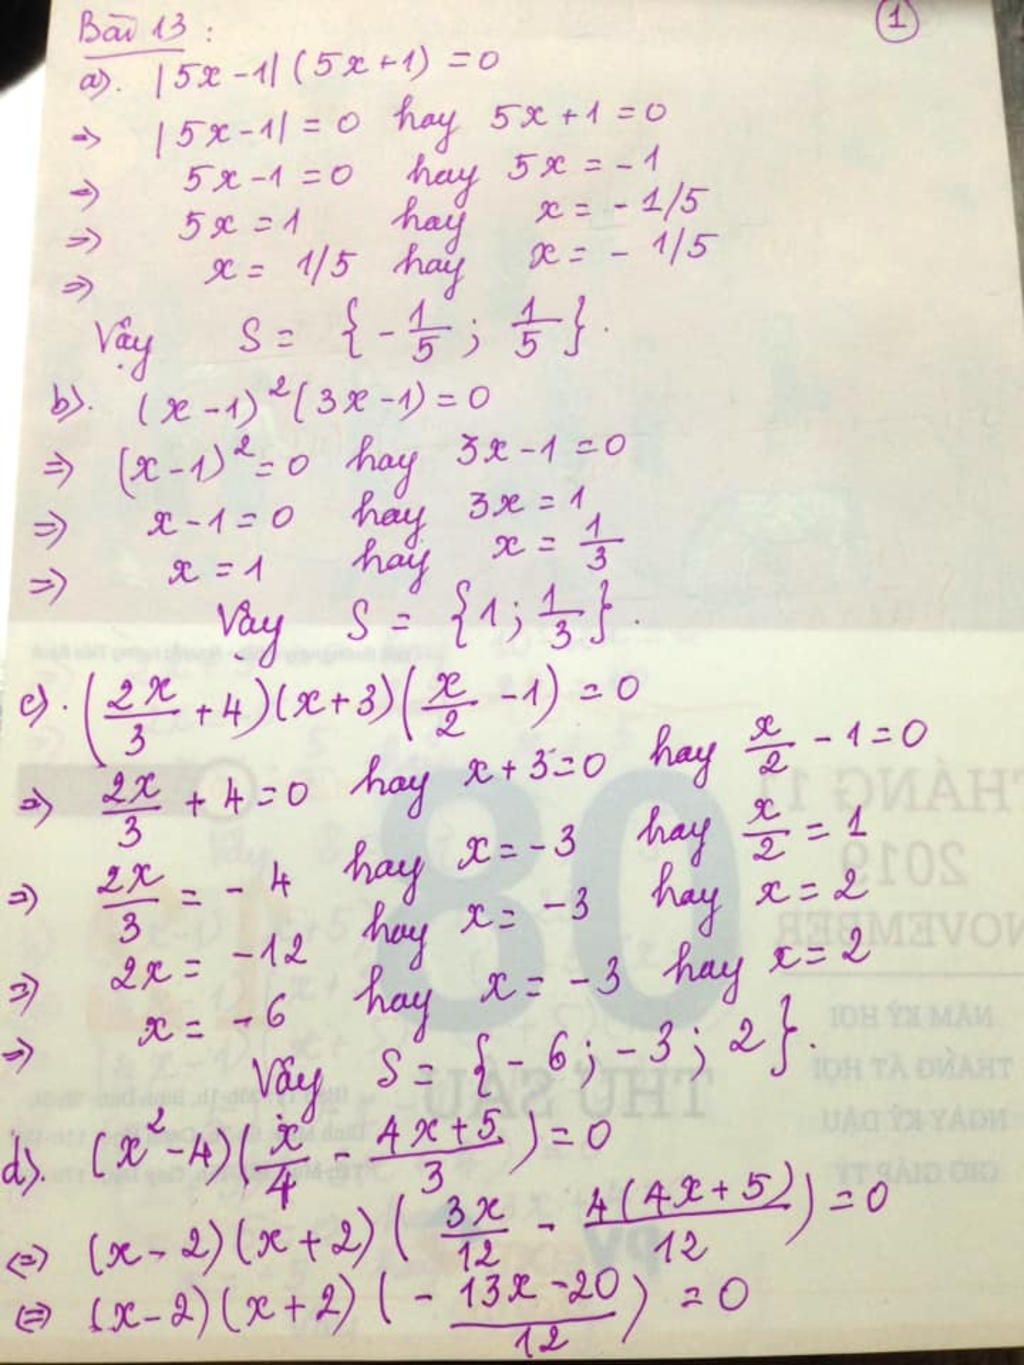 1
Bài 13 :
a). |5x-1| (5x+1) = 0
=> |5x-1| = 0 hay 5x+1 = 0
=> 5x-1 = 0 hay 5x = -1
=> 5x = 1 hay x = - 1/5
=> x = 1/5 hay x = - 1/5
Vậy S = { - 1/5 ; 1/5 }.
b). (x-1)² (3x-1) = 0
=> (x-1)² = 0 hay 3x-1 = 0
=> x-1 = 0 hay 3x = 1
=> x = 1 hay x = 1/3
Vậy S = { 1 ; 1/3 }.
c). (2x/3 + 4)(x+3)(x/2 - 1) = 0
=> 2x/3 + 4 = 0 hay x+3 = 0 hay x/2 - 1 = 0
=> 2x/3 = - 4 hay x = -3 hay x/2 = 1
=> 2x = -12 hay x = -3 hay x = 2
=> x = -6 hay x = -3 hay x = 2
Vậy S = { - 6 ; -3 ; 2 }.
d). (x² - 4)(x/4 - 4x+5/3) = 0
<=> (x-2)(x+2)(3x/12 - 4(4x+5)/12) = 0
<=> (x-2)(x+2)(- 13x-20/12) = 0
THÁNG 11
2019
NOVEMBER
08
THỨ SÁU
NĂM KỶ HỢI
THÁNG ẤT HỢI
NGÀY KỶ DẬU
GIỜ GIÁP TÝ